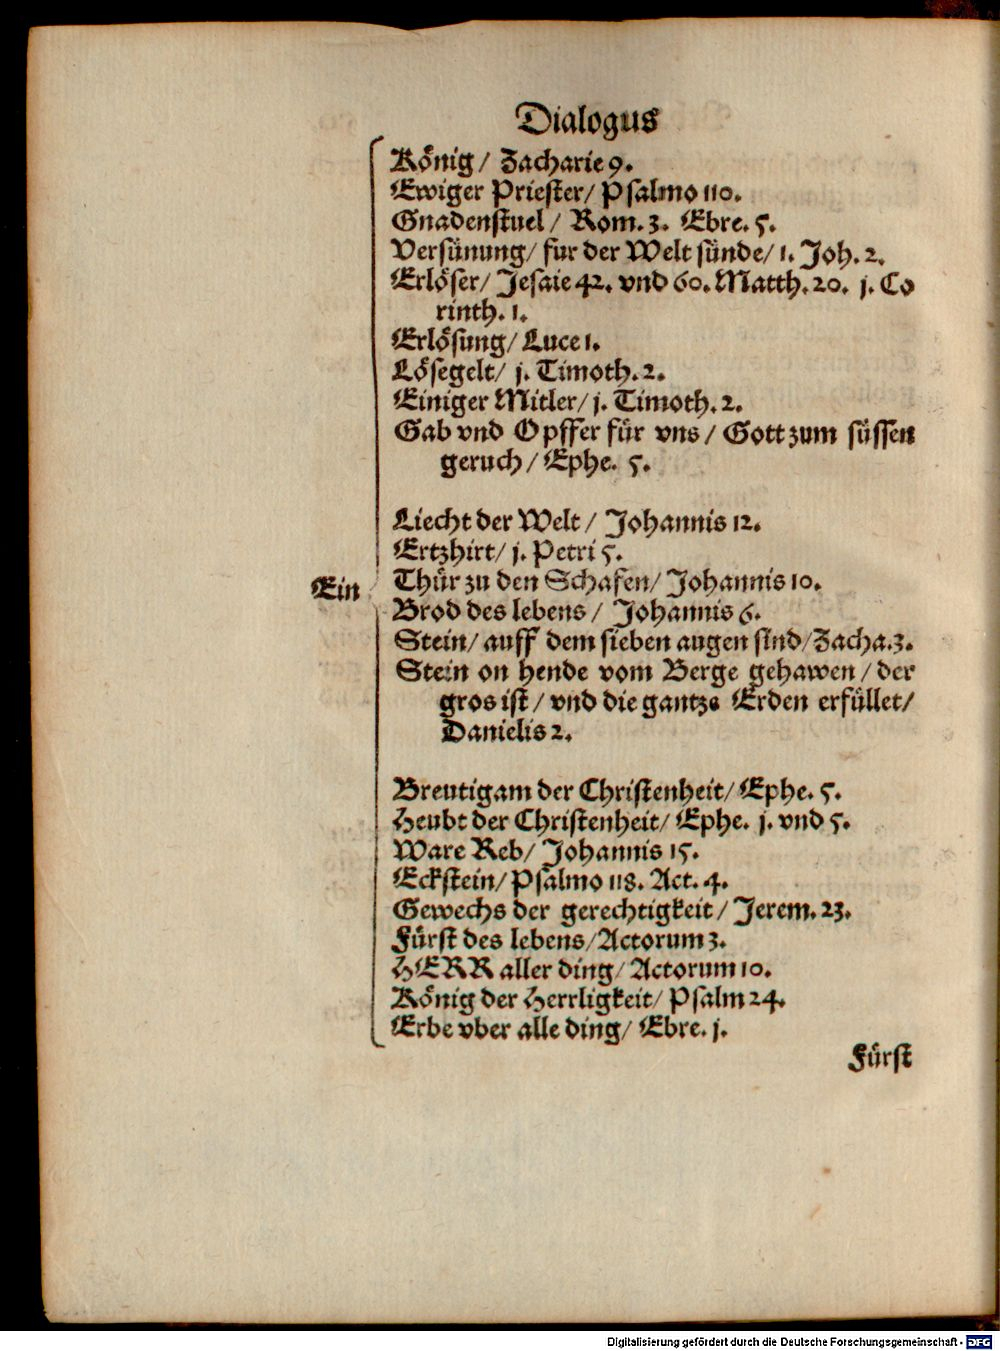 Dialogus
König/ Zacharie 9.
Ewiger Priester/ Psalmo 110.
Gnadenstuel/ Rom. 3. Ebre. 5.
Versünung/ fur der Welt sünde/ 1. Joh. 2.
Erlöser/ Jesaie 42. vnd 60. Matth. 20. j. Co
rinth. 1.
Erlösung/ Luce 1.
Lösegelt/ j. Timoth. 2.
Einiger Mitler/ j. Timoth. 2.
Gab vnd Opffer für vns/ Gott zum süssen
geruch/ Ephe. 5.
Liecht der Welt/ Johannis 12.
Ertzhirt/ j. Petri 5.
Ein
Thür zu den Schafen/ Johannis 10.
Brod des lebens/ Johannis 6.
Stein/ auff dem sieben augen sind/ Zacha. 3.
Stein on hende vom Berge gehawen/ der
gros ist/ vnd die gantze Erden erfüllet/
Danielis 2.
Breutigam der Christenheit/ Ephe. 5.
Heubt der Christenheit/ Ephe. j. vnd 5.
Ware Reb/ Johannis 15.
Eckstein/ Psalmo 118. Act. 4.
Gewechs der gerechtigkeit/ Jerem. 23.
Fürst des lebens/ Actorum 3.
HERR aller ding/ Actorum 10.
König der Herrligkeit/ Psalm 24.
Erbe vber alle ding/ Ebre. j.
Fürst
Digitalisierung gefördert durch die Deutsche Forschungsgemeinschaft - DFG